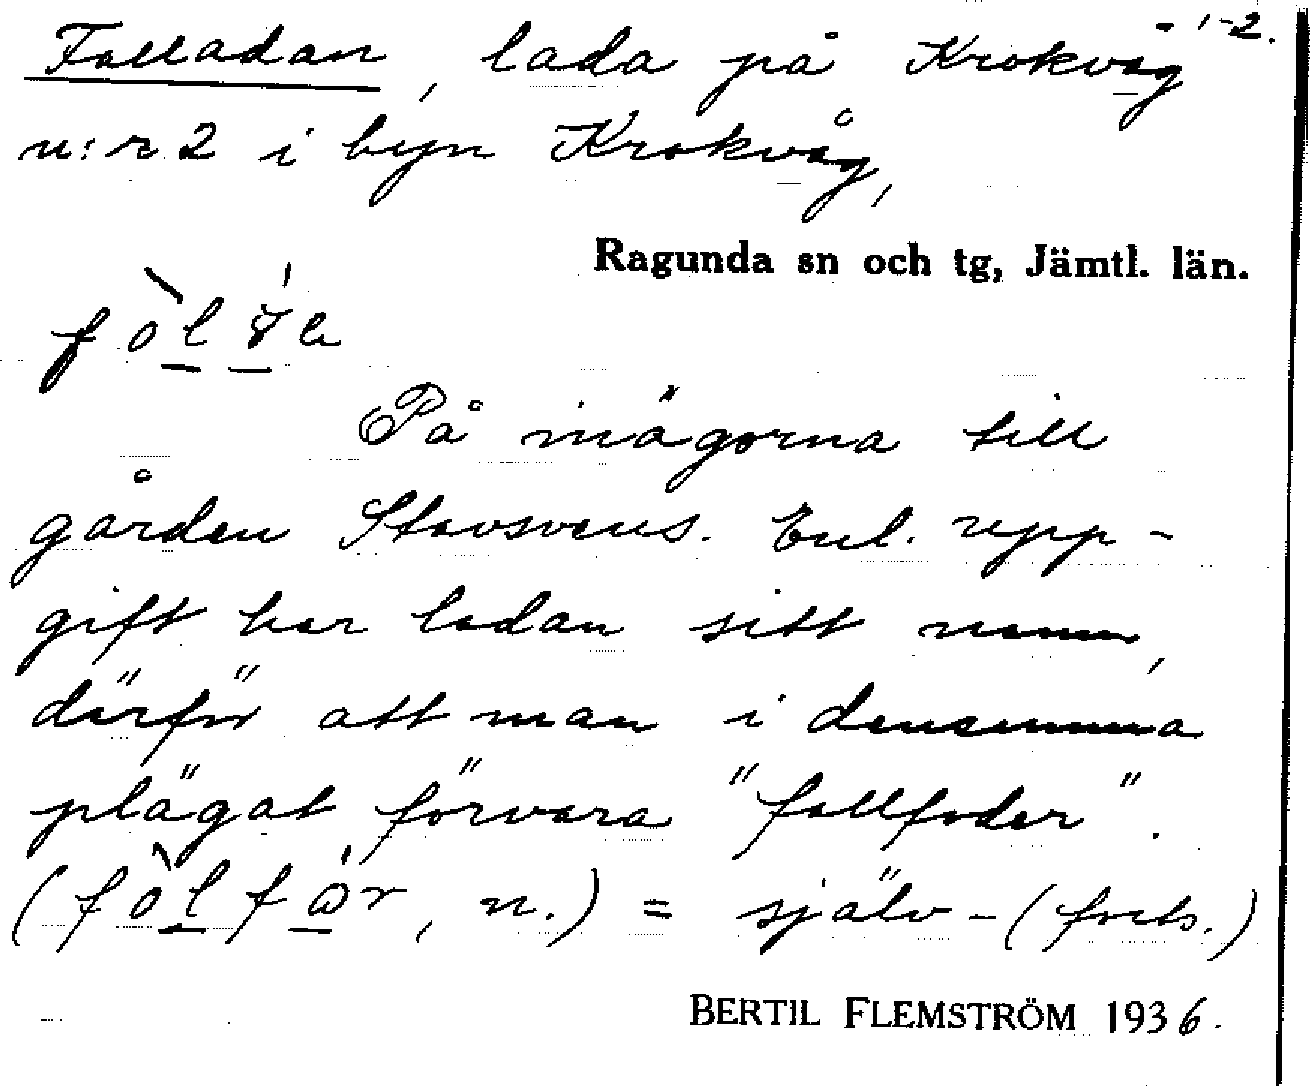 - 1-2.
Falladan, lada på Krokvåg
n:r 2 i byn Krokvåg,
Ragunda sn och tg, Jämtl. län.
På inägorna till
gården Stavsvens. Enl. upp-
gift har ladan sitt namn,
därför att man i densamma
plägat förvara "fallfoder".
n.) = själv-(forts.)
BERTIL FLEMSTRÖM 1936.